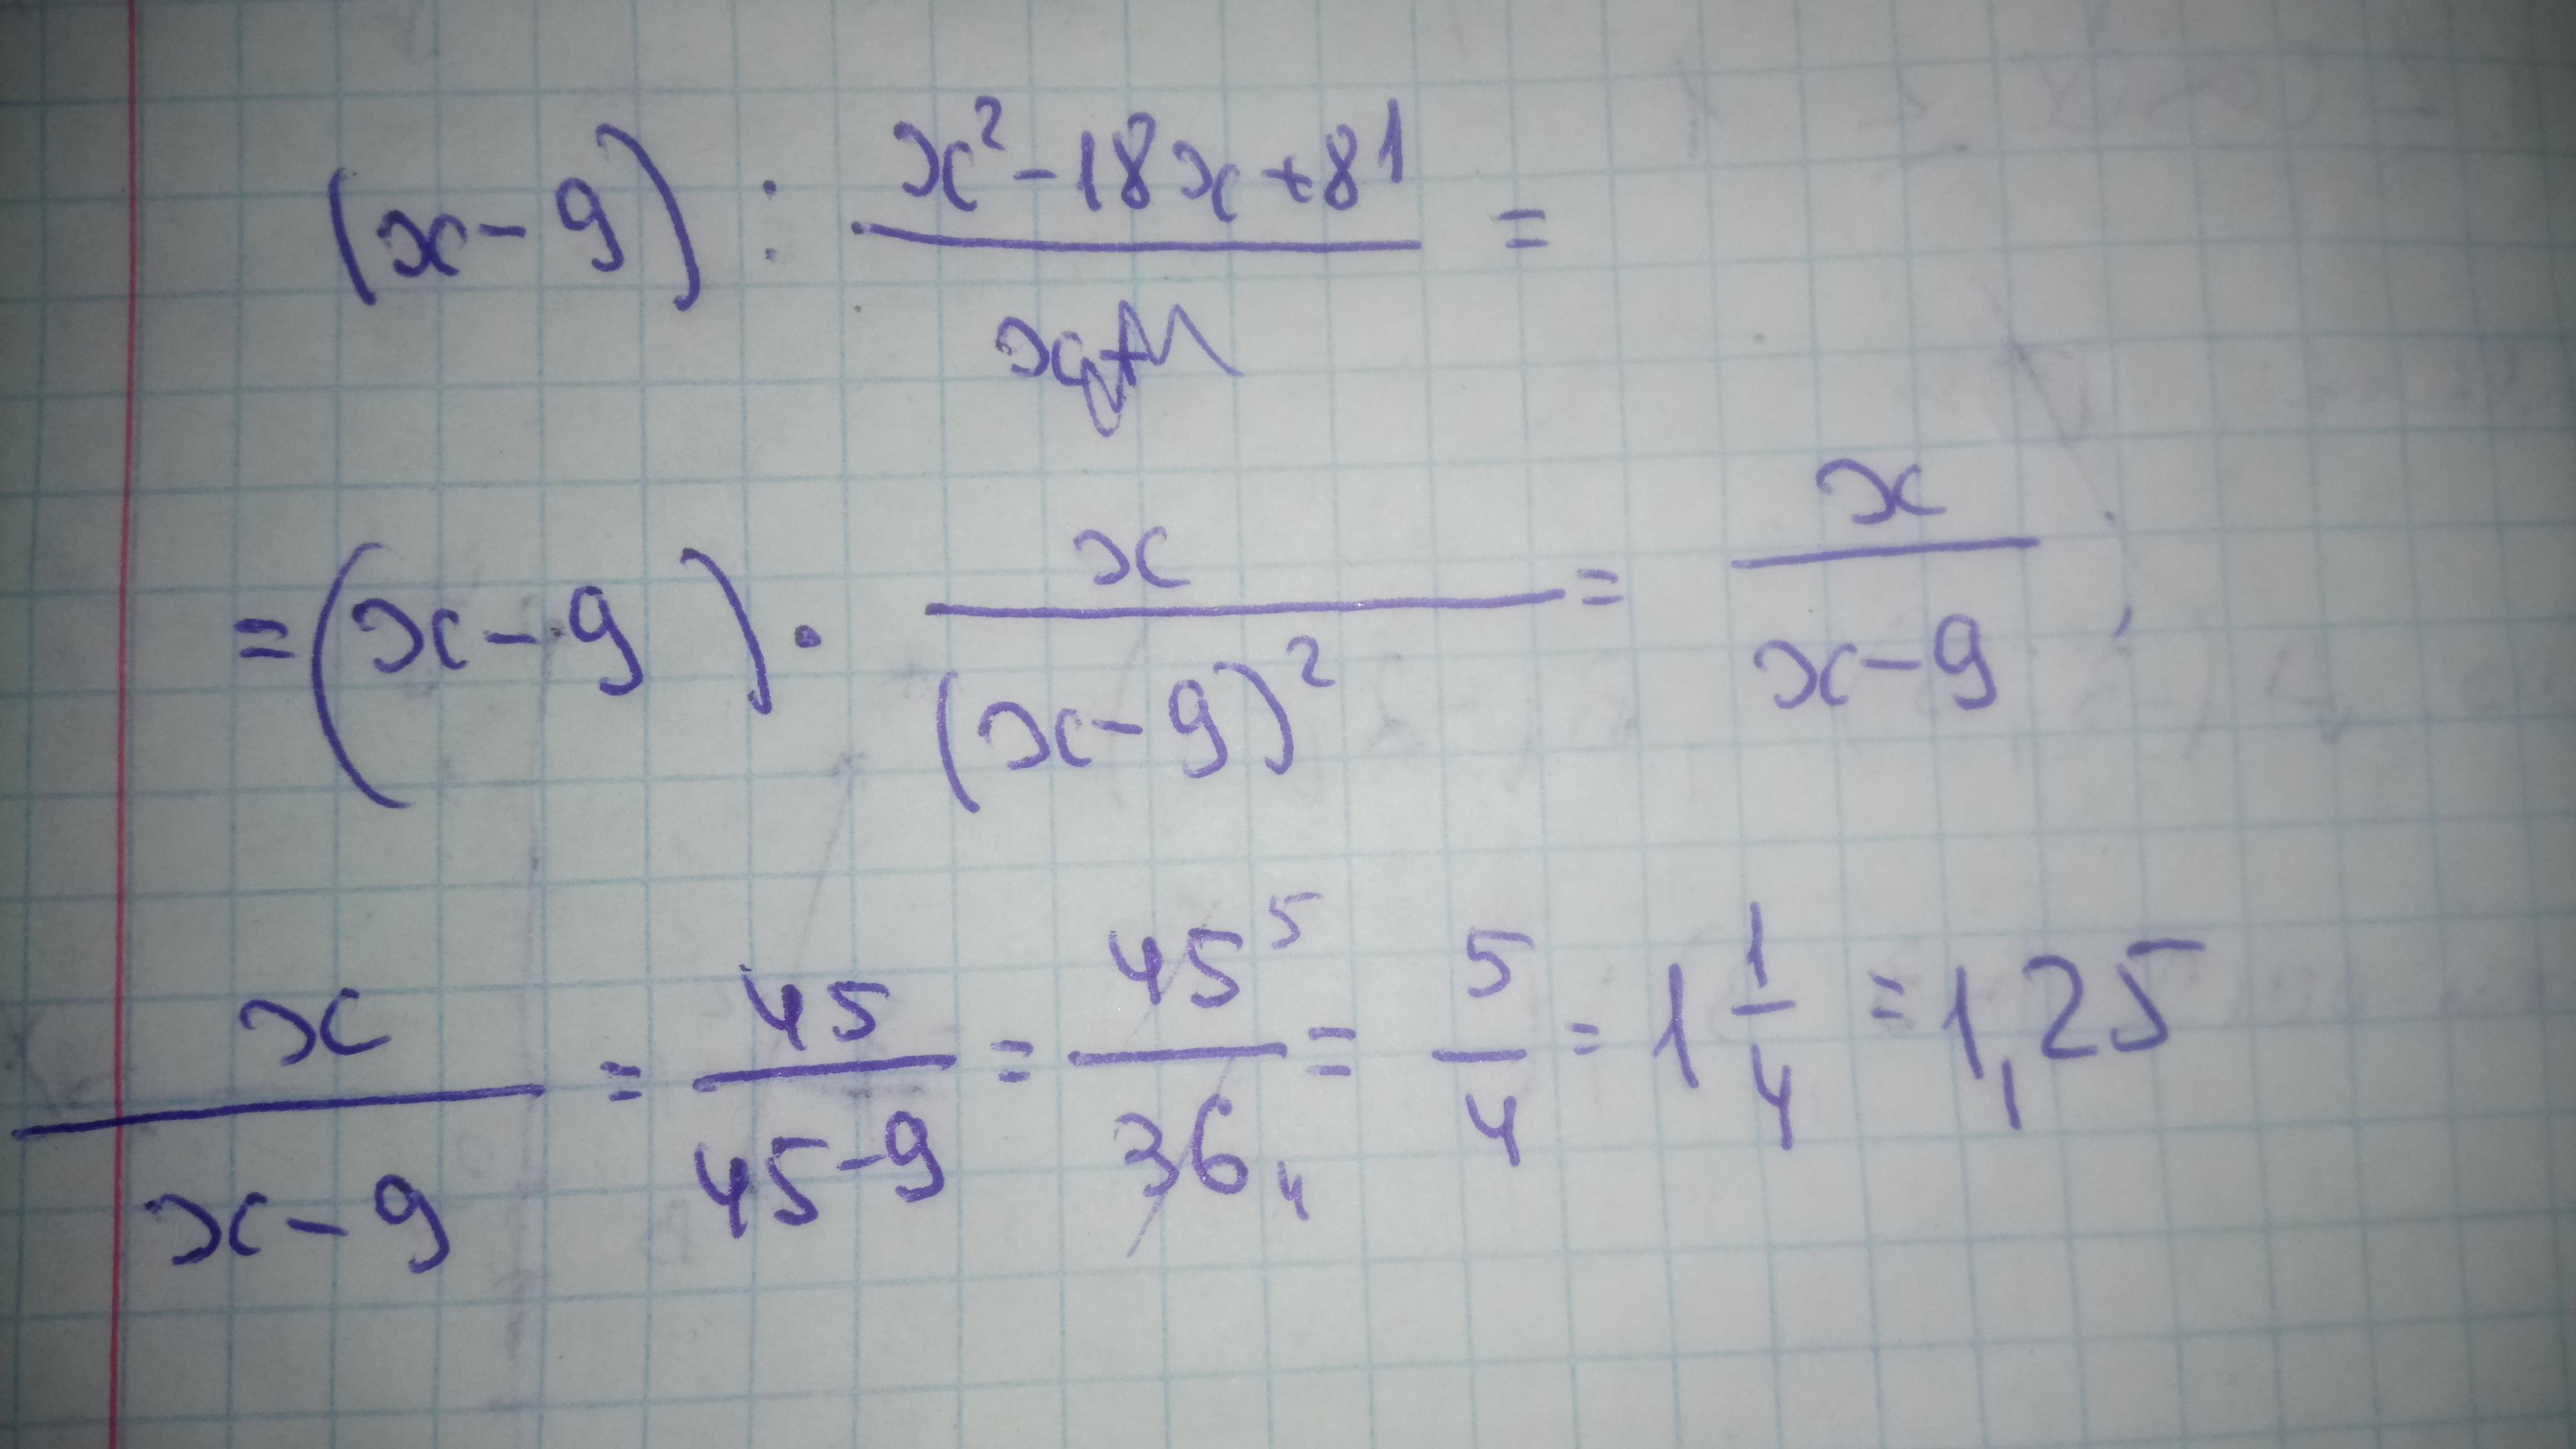 (x-9) : (x²-18x+81)/x =
=(x-9) · x/(x-9)² = x/(x-9) ;
x/(x-9) = 45/(45-9) = 45⁵/36₄ = 5/4 = 1 1/4 = 1,25